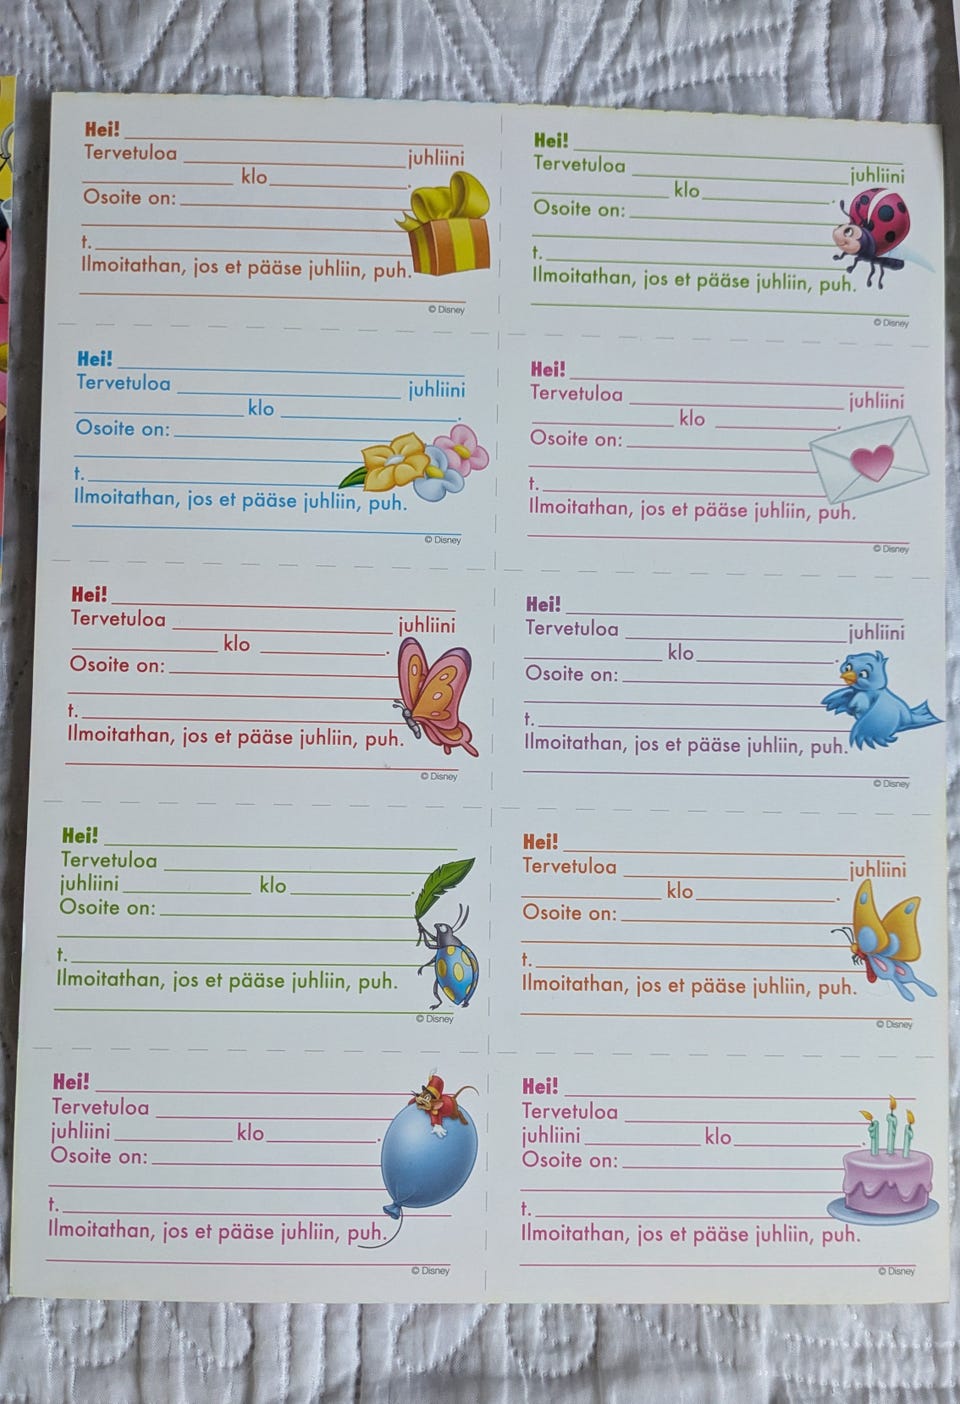 Hei!
Tervetuloa juhliini
klo .
Osoite on:
t.
Ilmoitathan, jos et pääse juhliin, puh.
© Disney
Hei!
Tervetuloa juhliini
klo .
Osoite on:
t.
Ilmoitathan, jos et pääse juhliin, puh.
© Disney
Hei!
Tervetuloa juhliini
klo .
Osoite on:
t.
Ilmoitathan, jos et pääse juhliin, puh.
© Disney
Hei!
Tervetuloa juhliini
klo .
Osoite on:
t.
Ilmoitathan, jos et pääse juhliin, puh.
© Disney
Hei!
Tervetuloa juhliini
klo .
Osoite on:
t.
Ilmoitathan, jos et pääse juhliin, puh.
© Disney
Hei!
Tervetuloa juhliini
klo .
Osoite on:
t.
Ilmoitathan, jos et pääse juhliin, puh.
© Disney
Hei!
Tervetuloa
juhliini klo .
Osoite on:
t.
Ilmoitathan, jos et pääse juhliin, puh.
© Disney
Hei!
Tervetuloa juhliini
klo .
Osoite on:
t.
Ilmoitathan, jos et pääse juhliin, puh.
© Disney
Hei!
Tervetuloa
juhliini klo .
Osoite on:
t.
Ilmoitathan, jos et pääse juhliin, puh.
© Disney
Hei!
Tervetuloa
juhliini klo .
Osoite on:
t.
Ilmoitathan, jos et pääse juhliin, puh.
© Disney